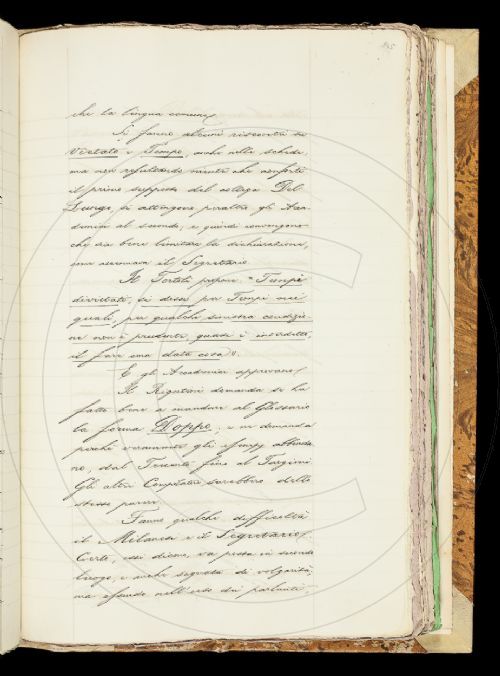 145
che la lingua comune.
Si fanno alcuni riscontri su
Vietato e Tempo, anche nelle schede
ma non risultando niente che conforti
il primo supposto dal collega Del
Lungo, si attengono peraltro gli Acca-
demici al secondo, e quindi convengono
che sia bene limitare la dichiarazione,
come accennava il Segretario.
Il Tortoli propone: "Tempi
divietati, si dicon per Tempi nei
quali, per qualche sinistra condizio-
ne non è prudente, quasi è interdetto,
il fare una data cosa".
E gli Accademici approvano.
Il Rigutini domanda se ha
fatto bene a mandare al Glossario
la forma Doppo, e ne domanda
perchè veramente gli esempj abbonda-
no, dal Trecento fino al Targioni.
Gli altri Compilatori sarebbero dello
stesso parere.
Fanno qualche difficoltà
il Milanesi e il Segretario.
Certo, essi dicono, va posta in secondo
luogo, e anche segnata di volgarità;
ma essendo nell'uso dei parlanti,